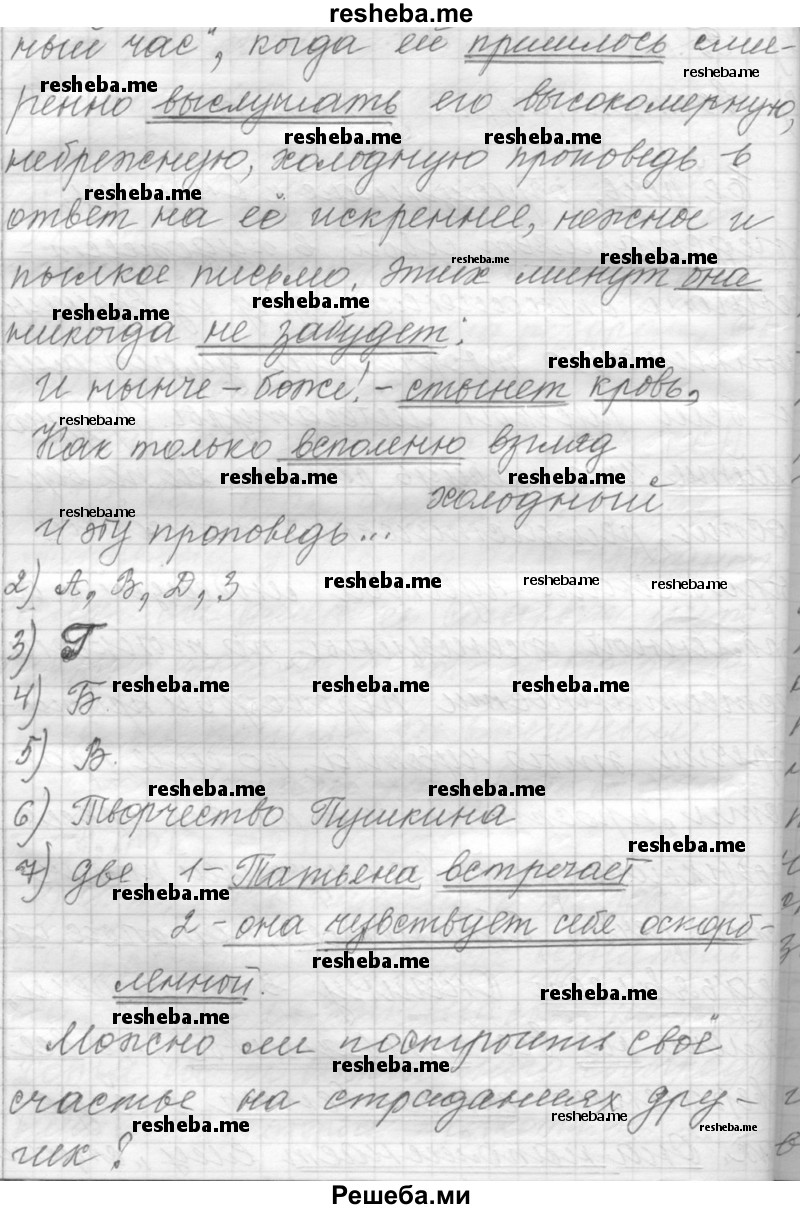 resheba.me
ный час", когда ей пришлось сми-
resheba.me
resheba.me
ренно выслушать его высокомерную,
resheba.me resheba.me
небрежную, холодную проповедь в
resheba.me
ответ на её искреннее, нежное и
resheba.me resheba.me
пылкое письмо. Этих минут она
resheba.me resheba.me
никогда не забудет:
resheba.me
И нынче – боже! – стынет кровь,
resheba.me
Как только вспомню взгляд
resheba.me resheba.me
холодный
resheba.me
И эту проповедь...
2) А, В, Д, З resheba.me resheba.me resheba.me
3) Г
4) Б. resheba.me resheba.me resheba.me
5) В.
resheba.me resheba.me
6) Творчество Пушкина
resheba.me
7) две 1 – Татьяна встречает
resheba.me
2 – она чувствует себя оскорб-
resheba.me
ленной.
resheba.me
resheba.me
Можно ли построить своё
resheba.me
счастье на страданиях дру-
resheba.me
resheba.me resheba.me
гих?
Решеба.ми